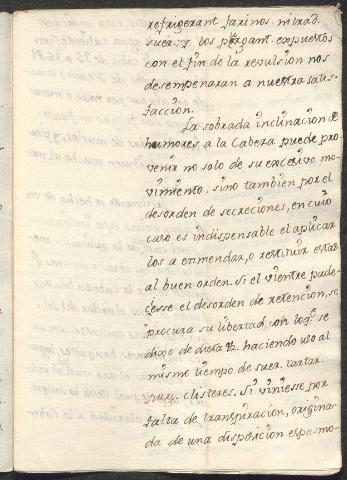 refrigerant. farinos. nitrad.
suer; y los purgant. expuestos
con el fin de la revulsion nos
desempeñaran a nuestra satis-
faccion.
La sobrada inclinacion de
humores, a la Cabeza puede pro-
venir no solo de su excesivo mo-
vimiento, sino tambien por el
desorden de secreciones, en cuio
caso es indispensable el aplicar
los a enmendar, o restituir estas
al buen orden. Si el vientre pade-
ciesse el desorden de retencion, se
procura su libertad con lo qe. se
dixo de dieta &. haciendo uso al
mismo tiempo de suer. tartar
purg. clisteres. Si viniesse por
falta de transpiracion, origina-
da de una disposicion espasmo-